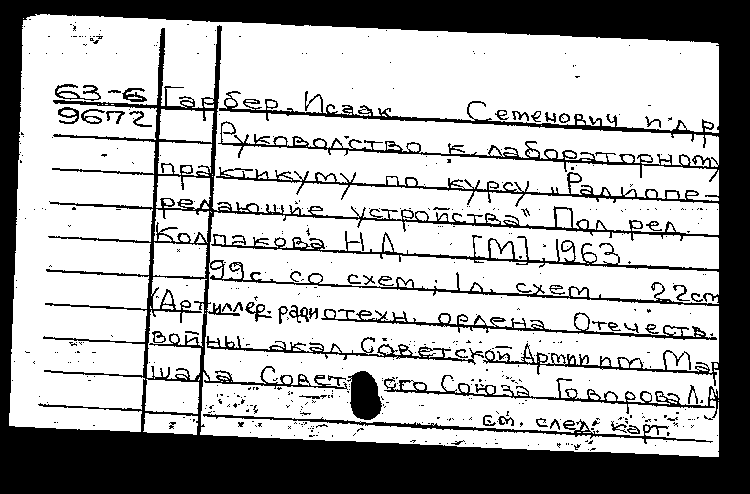 63-6 Гарбер, Исаак Семенович и др.
9672 Руководство к лабораторному
практикуму по курсу „Радиопе-
редающие устройства" Под ред.
Колпакова Н.Д. [М.], 1963.
99с. со схем.; 1л. схем. 22см
(Артиллер. радиотехн. ордена Отечеств.
войны акад. Советской Армии им. Мар
шала Совет ого Союза Говорова Л.А
см. след. карт.